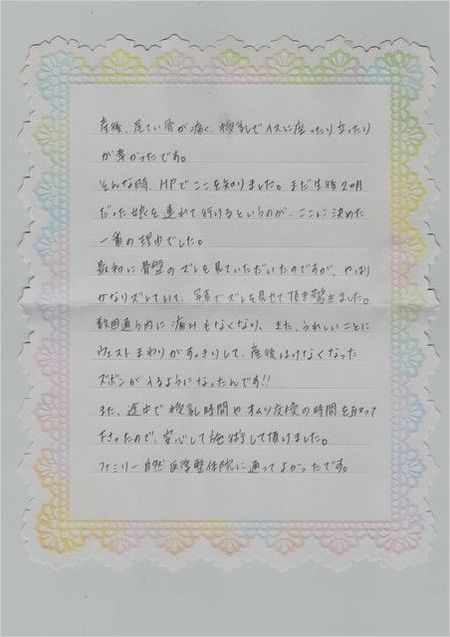 産後、尾てい骨が痛く、授乳でイスに座ったり立ったり
が辛かったです。
そんな時、HPでここを知りました。まだ生後2ヵ月
だった娘を連れて行けるというのが、ここに決めた
一番の理由でした。
最初に骨盤のズレを見ていただいたのですが、やはり
かなりズレていて、写真でズレを見せて頂き驚きました。
数回通う内に痛みもなくなり、また、うれしいことに
ウェストまわりがすっきりして、産後はけなくなった
ズボンが入るようになったんです!!
また、途中で授乳時間やオムツ交換の時間を取って
下さったので、安心して施術して頂けました。
ファミリー自然医学整体院に通ってよかったです。